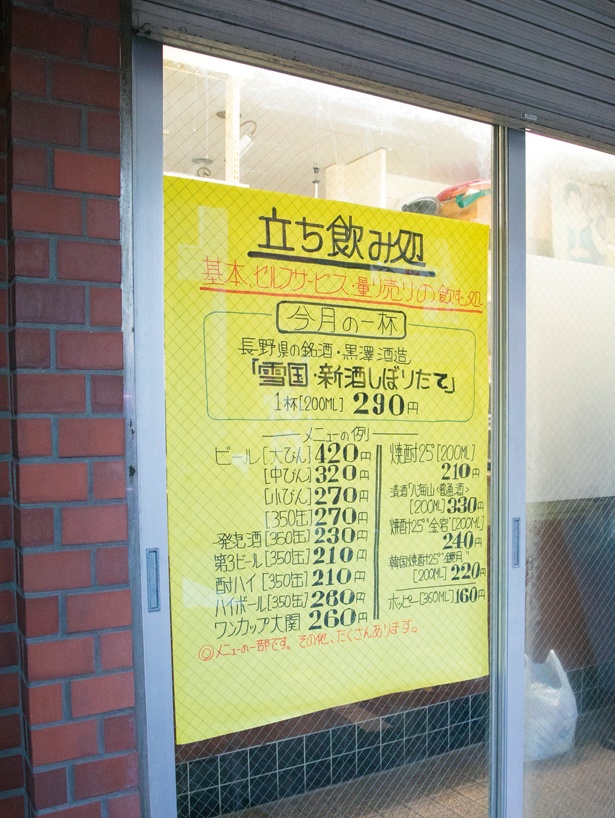 立ち飲み処
基本、セルフサービス・量り売りの飲む処
今月の一杯
長野県の銘酒・黒澤酒造
「雪国・新酒しぼりたて」
1杯[200ML] 290円
メニューの例
ビール[大びん] 420円
[中びん] 320円
[小びん] 270円
[350缶] 270円
発泡酒[350缶] 230円
第3ビール[350缶] 210円
酎ハイ[350缶] 210円
ハイボール[350缶] 260円
ワンカップ大関 260円
焼酎25°[200ML]
210円
清酒「八海山・普通酒」
[200ML] 330円
焼酎25°"金宮"[200ML]
240円
韓国焼酎25°"鏡月"
[200ML] 220円
ホッピー[360ML] 160円
◎メニューの一部です。その他、たくさんあります。